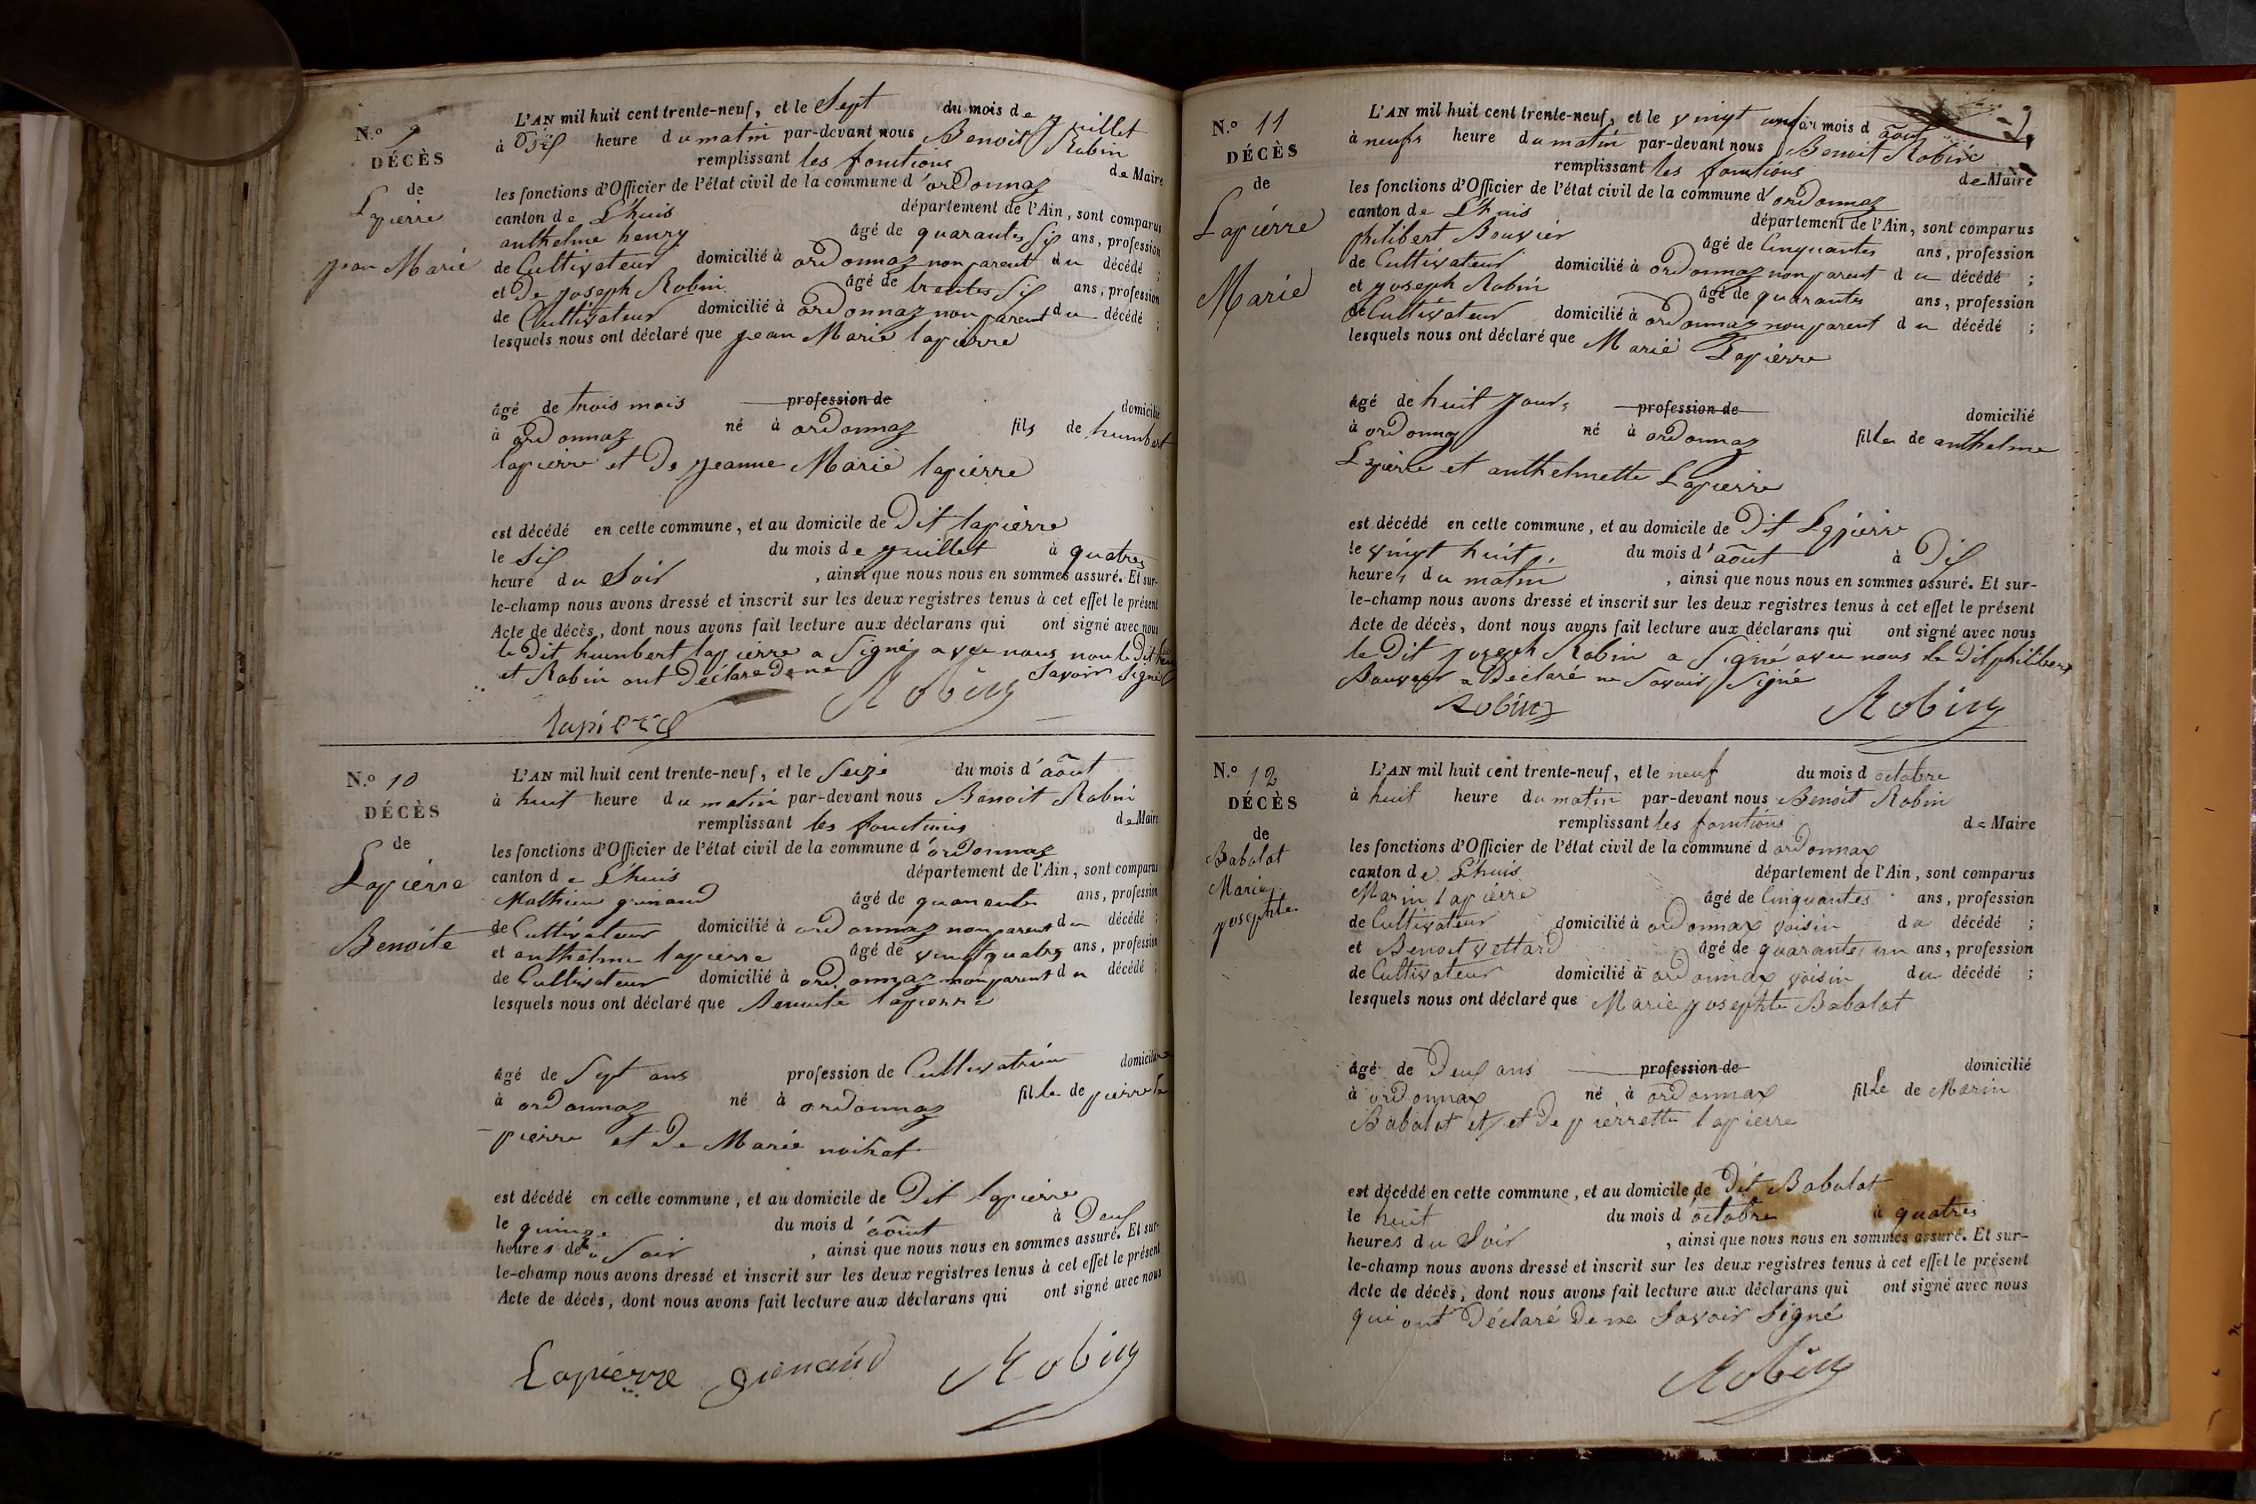 N.o 9
DÉCÈS
de
Lapierre
jean Marie
L'AN mil huit cent trente-neuf, et le Sept du mois de juillet
à Dix heure du matin par-devant nous Benoit Robin
remplissant les fonctions de Maire
les fonctions d'Officier de l'état civil de la commune d'ordonnaz
canton de L'huis département de l'Ain, sont comparus
anthelme henry âgé de quarantes Six ans, profession
de Cultivateur domicilié à ordonnaz non parent du décédé ;
et De joseph Robin âgé de trentes Six ans, profession
de Cultivateur domicilié à ordonnaz non parent du décédé ;
lesquels nous ont déclaré que jean Marie lapierre
âgé de trois mois profession de domicilié
à ordonnaz né à ordonnaz fils de humbert
lapierre et De jeanne Marie lapierre
est décédé en cette commune, et au domicile de Dit lapierre
le Six du mois de juillet à quatres
heure du Soir , ainsi que nous nous en sommes assuré. Et sur-
le-champ nous avons dressé et inscrit sur les deux registres tenus à cet effet le présent
Acte de décès, dont nous avons fait lecture aux déclarans qui ont signé avec nous
le Dit humbert lapierre a Signé avec nous non le Dit
et Robin ont Déclaré De ne Savoir Signé
lapierre Robin
N.o 10
DÉCÈS
de
Lapierre
Benoite
L'AN mil huit cent trente-neuf, et le Seize du mois d'août
à huit heure du matin par-devant nous Benoit Robin
remplissant les fonctions de Maire
les fonctions d'Officier de l'état civil de la commune d'ordonnaz
canton de L'huis département de l'Ain, sont comparus
Mathieu grinand âgé de quarante ans, profession
de Cultivateur domicilié à ordonnaz non parent du décédé ;
et anthelme lapierre âgé de vingt quatres ans, profession
de Cultivateur domicilié à ordonnaz non parent du décédé ;
lesquels nous ont déclaré que Benoite lapierre
âgé de Sept ans profession de Cultivatrice domicilié
à ordonnaz né à ordonnaz fille de pierre la
pierre et De Marie
est décédé en cette commune, et au domicile de Dit lapierre
le quinze du mois d'août à Deux
heures du Soir , ainsi que nous nous en sommes assuré. Et sur-
le-champ nous avons dressé et inscrit sur les deux registres tenus à cet effet le présent
Acte de décès, dont nous avons fait lecture aux déclarans qui ont signé avec nous
Lapierre Robin
N.o 11
DÉCÈS
de
Lapierre
Marie
L'AN mil huit cent trente-neuf, et le vingt neuf du mois d'août
à neufs heure du matin par-devant nous Benoit Robin
remplissant les fonctions de Maire
les fonctions d'Officier de l'état civil de la commune d'ordonnaz
canton de L'huis département de l'Ain, sont comparus
philibert Bouvier âgé de Cinquantes ans, profession
de Cultivateur domicilié à ordonnaz non parent du décédé ;
et joseph Robin âgé de quarantes ans, profession
de Cultivateur domicilié à ordonnaz non parent du décédé ;
lesquels nous ont déclaré que Marie Lapierre
âgé de huit jours profession de domicilié
à ordonnaz né à ordonnaz fille de anthelme
Lapierre et anthelmette Lapierre
est décédé en cette commune, et au domicile de Dit Lapierre
le vingt huit du mois d'août à Dix
heures du matin , ainsi que nous nous en sommes assuré. Et sur-
le-champ nous avons dressé et inscrit sur les deux registres tenus à cet effet le présent
Acte de décès, dont nous avons fait lecture aux déclarans qui ont signé avec nous
le Dit joseph Robin a Signé avec nous le Dit philibert
Bouvier a Déclaré ne Savoir Signé
Robin Robin
N.o 12
DÉCÈS
de
Babolat
Marie
josephte
L'AN mil huit cent trente-neuf, et le neuf du mois d octobre
à huit heure du matin par-devant nous Benoit Robin
remplissant les fonctions de Maire
les fonctions d'Officier de l'état civil de la commune d ordonnax
canton de L'huis département de l'Ain, sont comparus
Marin lapierre âgé de Cinquantes ans, profession
de Cultivateur domicilié à ordonnax voisin du décédé ;
et Benoit Vettard âgé de quarantes un ans, profession
de Cultivateur domicilié à ordonnax voisin du décédé ;
lesquels nous ont déclaré que Marie josephte Babolat
âgé de Deux ans profession de domicilié
à ordonnax né à ordonnax fille de Marin
Babolat et/ et De pierrette lapierre
est décédé en cette commune, et au domicile de Dit Babolat
le huit du mois d'octobre à quatres
heures du Soir , ainsi que nous nous en sommes assuré. Et sur-
le-champ nous avons dressé et inscrit sur les deux registres tenus à cet effet le présent
Acte de décès, dont nous avons fait lecture aux déclarans qui ont signé avec nous
qui ont Déclaré De ne Savoir Signé
Robin